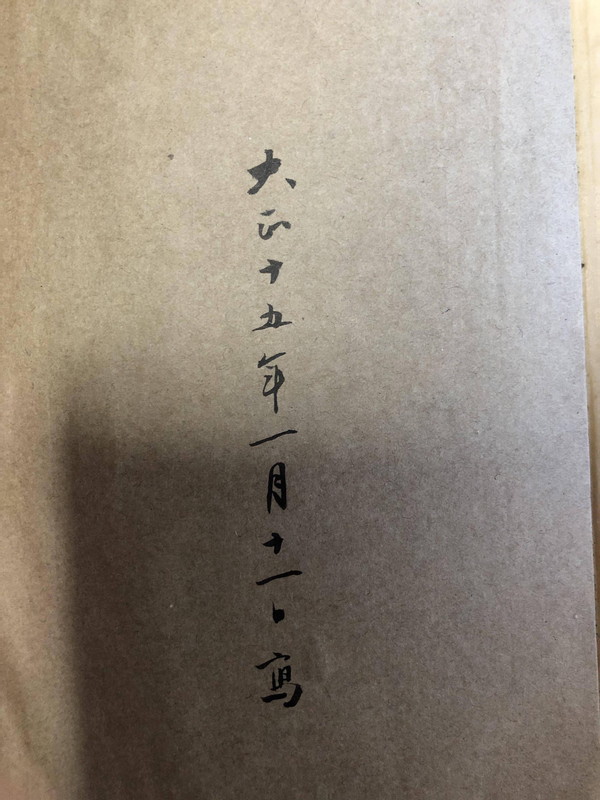 大正十五年一月十一日寫